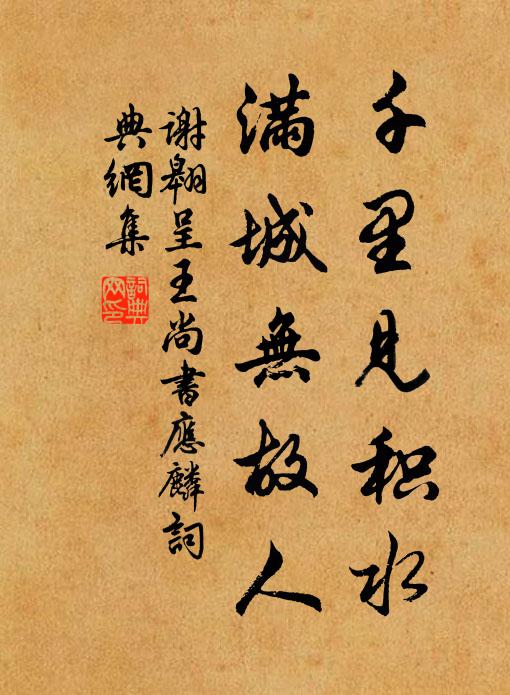 千里見积水
滿城無故人
謝翱呈王尚書應麟詞
典網集
詞典网印